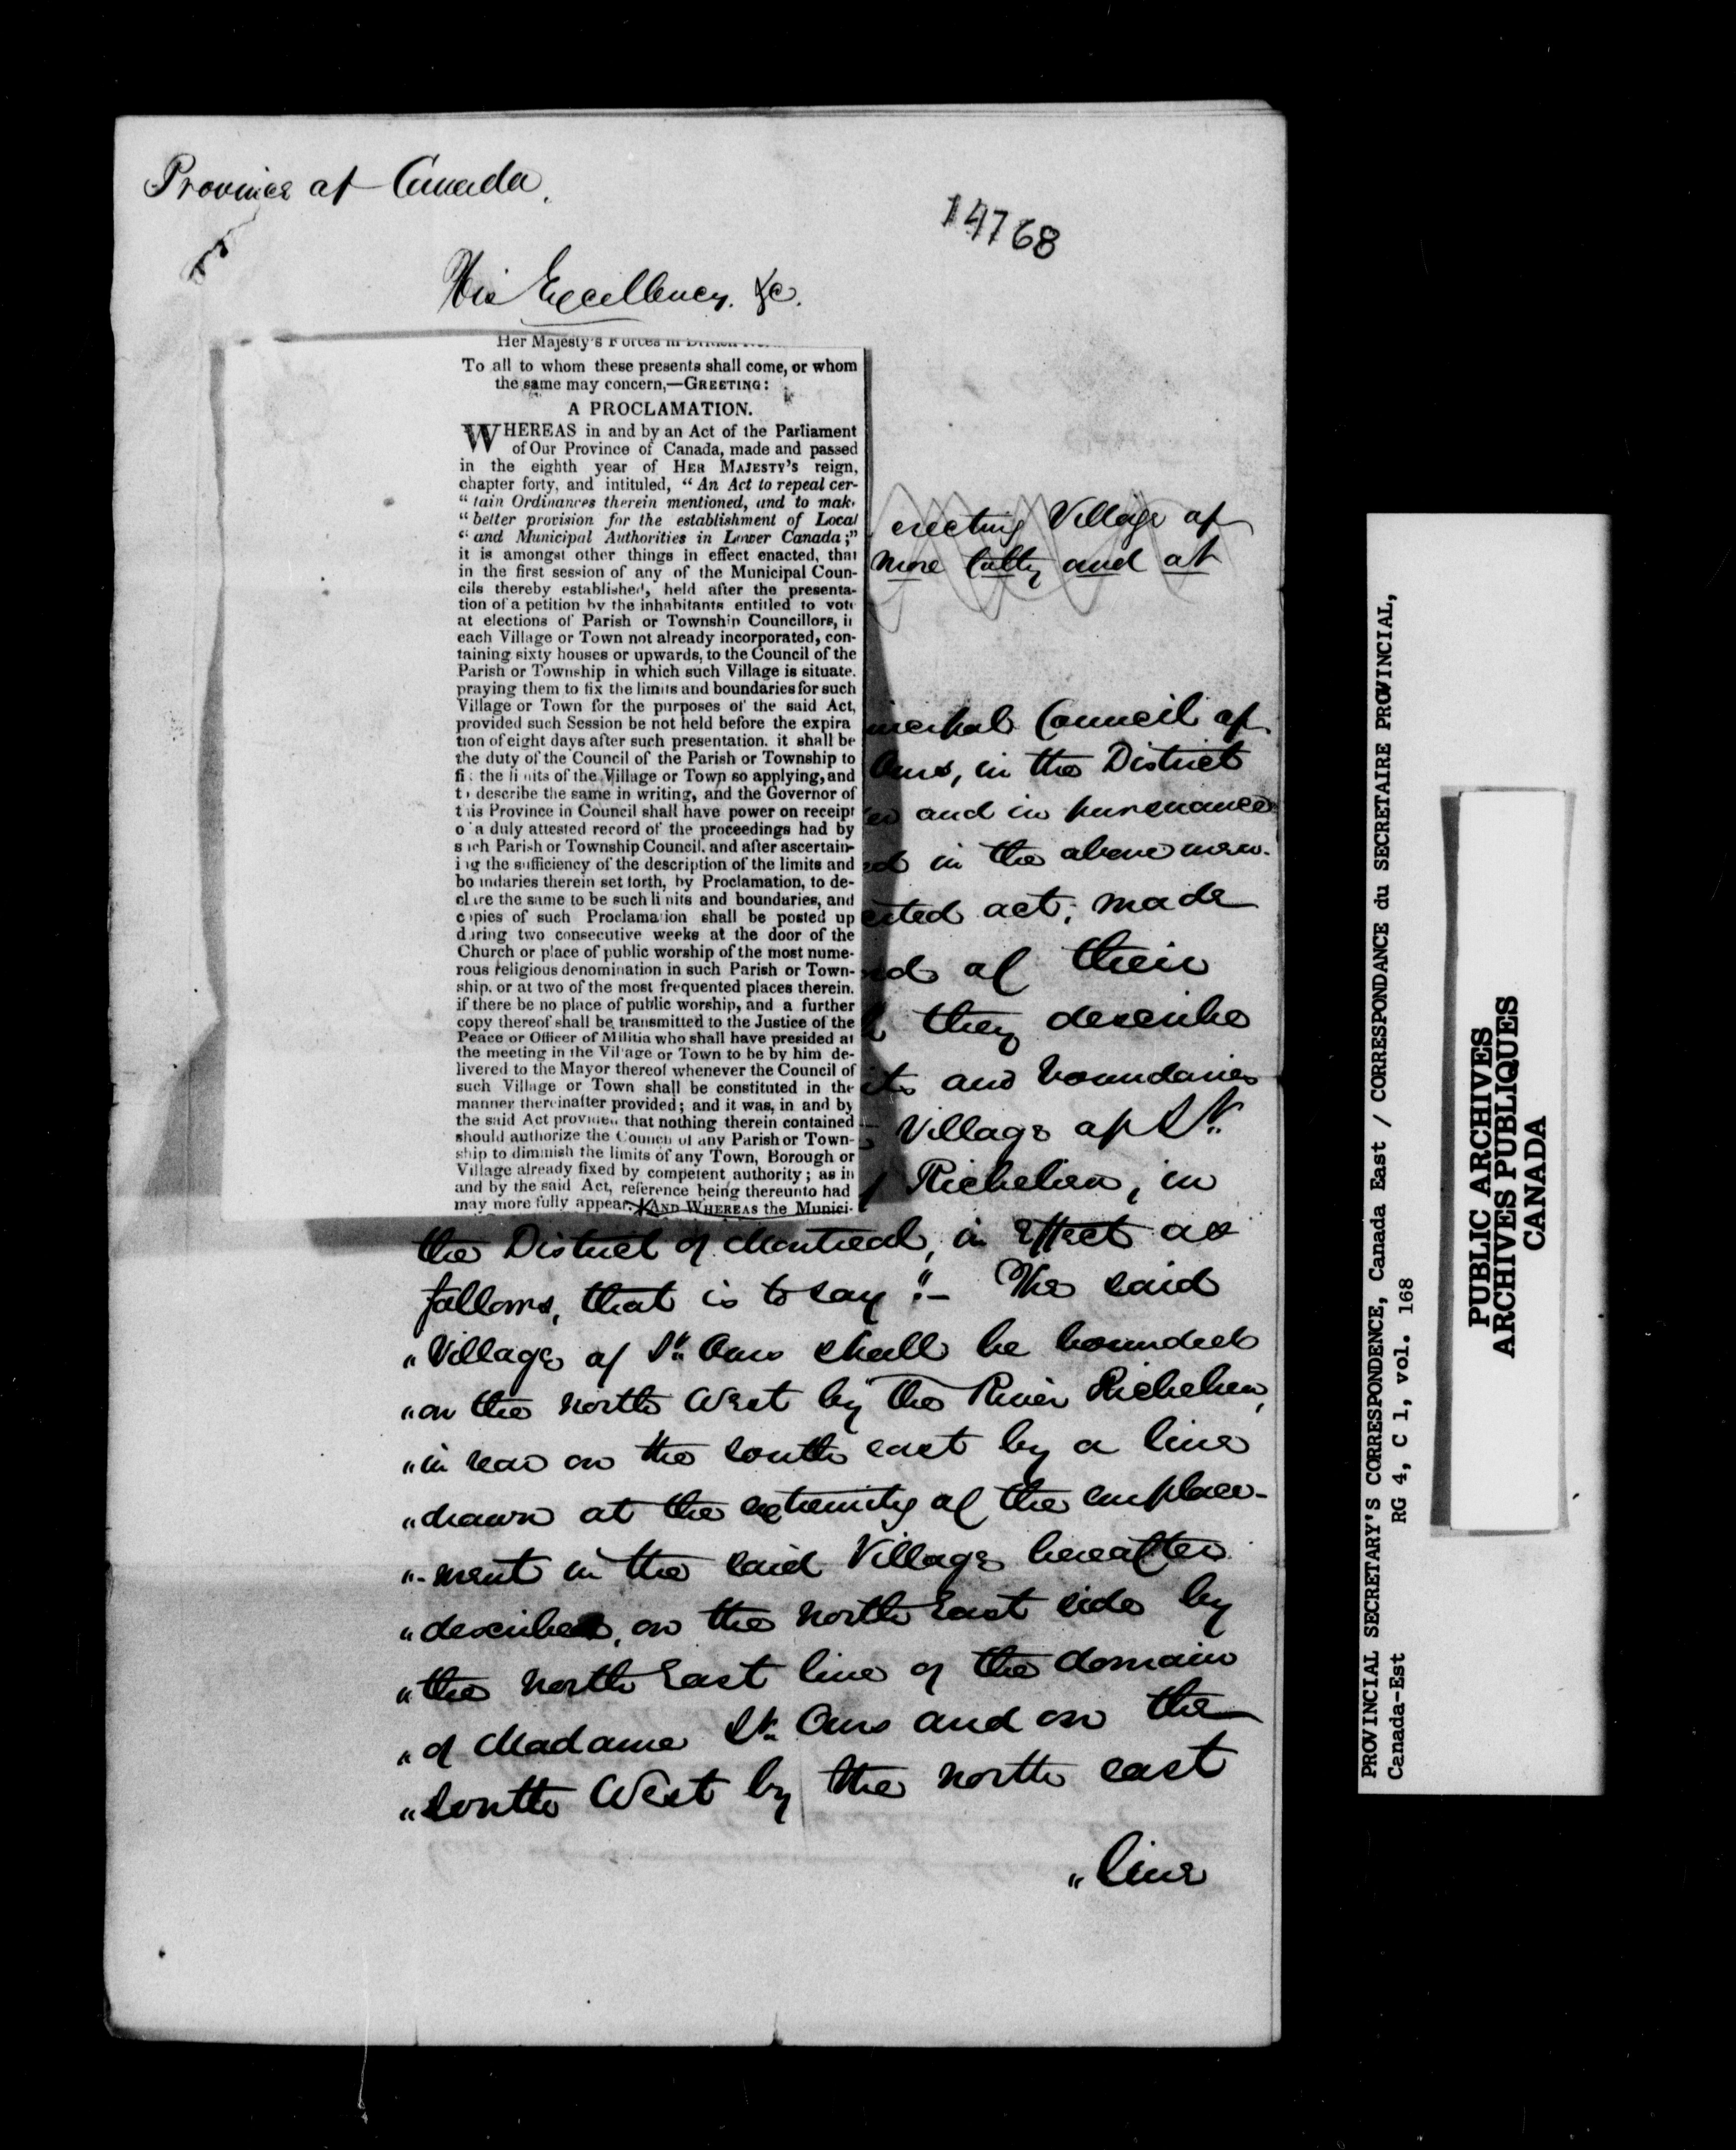 Province of Canada.
14768
His Excellency. &c.
Her Majesty's Forces in
To all to whom these presents shall come, or whom
the same may concern,—GREETING:
A PROCLAMATION.
WHEREAS in and by an Act of the Parliament
of Our Province of Canada, made and passed
in the eighth year of HER MAJESTY'S reign,
chapter forty, and intituled, "An Act to repeal cer-
"tain Ordinances therein mentioned, and to mak
"better provision for the establishment of Local
"and Municipal Authorities in Lower Canada;"
it is amongst other things in effect enacted, that
in the first session of any of the Municipal Coun-
cils thereby established, held after the presenta-
tion of a petition by the inhabitants entitled to vote
at elections of Parish or Township Councillors, i
each Village or Town not already incorporated, con-
taining sixty houses or upwards, to the Council of the
Parish or Township in which such Village is situate.
praying them to fix the limits and boundaries for such
Village or Town for the purposes of the said Act,
provided such Session be not held before the expira
tion of eight days after such presentation. it shall be
the duty of the Council of the Parish or Township to
fi the li nits of the Village or Town so applying, and
t describe the same in writing, and the Governor of
t is Province in Council shall have power on receipt
o a duly attested record of the proceedings had by
s ch Parish or Township Council. and after ascertain-
i g the sufficiency of the description of the limits and
bo ndaries therein set forth, by Proclamation, to de-
cl re the same to be such li nits and boundaries, and
c pies of such Proclama ion shall be posted up
d ring two consecutive weeks at the door of the
Church or place of public worship of the most nume-
rous religious denomination in such Parish or Town-
ship. or at two of the most frequented places therein.
if there be no place of public worship, and a further
copy thereof shall be transmitted to the Justice of the
Peace or Officer of Militia who shall have presided at
the meeting in the Village or Town to be by him de-
livered to the Mayor thereof whenever the Council of
such Village or Town shall be constituted in the
manner thereinafter provided; and it was, in and by
the said Act provided that nothing therein contained
should authorize the Council of any Parish or Town-
ship to diminish the limits of any Town, Borough or
Village already fixed by competent authority; as in
and by the said Act, reference being thereunto had
may more fully appear. AND WHEREAS the Munici-
erecting Village of
more fully and at
nicipal Council of
Ours, in the District
and in pursuance
ed in the above men-
cited act, made
of their
they describe
its and boundaries
Village of St.
Richelieu, in
the District of Montreal, in Effect as
follows, that is to say :"- The said
"Village of St. Ours shall be bounded
"on the North West by the River Richelieu,
"in rear on the south east by a line
"drawn at the extremity of the emplace-
"-ment in the said Village hereafter
"described, on the North East side by
"the North East line of the domain
"of Madame St. Ours and on the
"South West by the north east
"line
PROVINCIAL SECRETARY'S CORRESPONDENCE, Canada East / CORRESPONDANCE du SECRETAIRE PROVINCIAL,
Canada-Est RG 4, C 1, vol. 168
PUBLIC ARCHIVES
ARCHIVES PUBLIQUES
CANADA